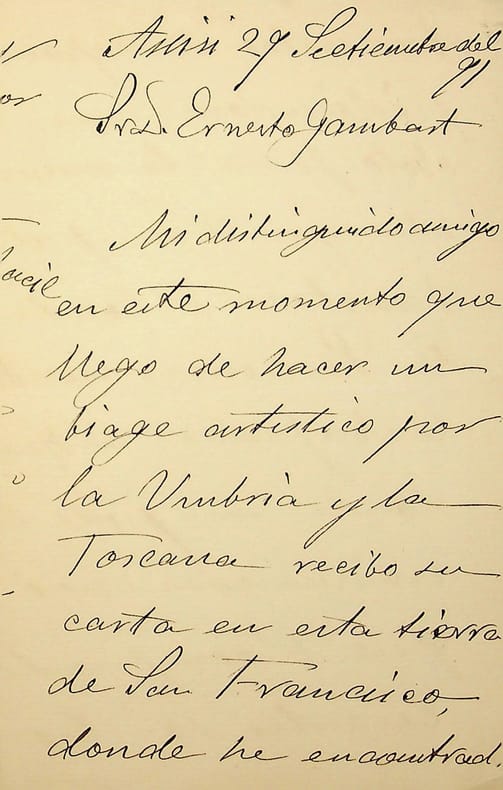 Assisi 29 Setiembre del
91
Sr D. Ernesto Gambart
Mi distinguido amigo
en este momento que
llego de hacer un
biage artistico por
la Umbria y la
Toscana recibo su
carta en esta tierra
de San Francisco,
donde he encontrad.